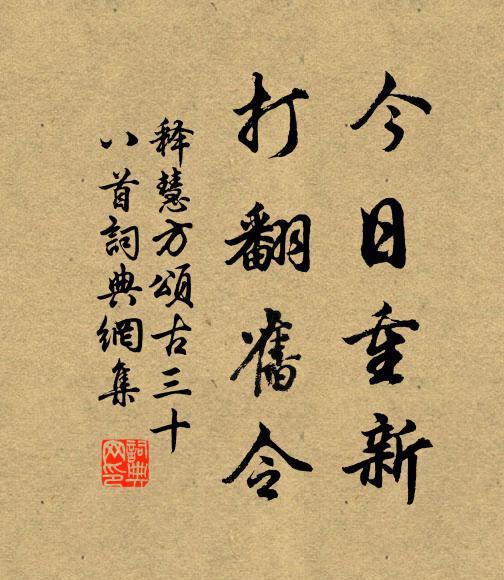 今日重新
打翻舊令
释慧方頌古三十
八首詞典網集
詞典
网印